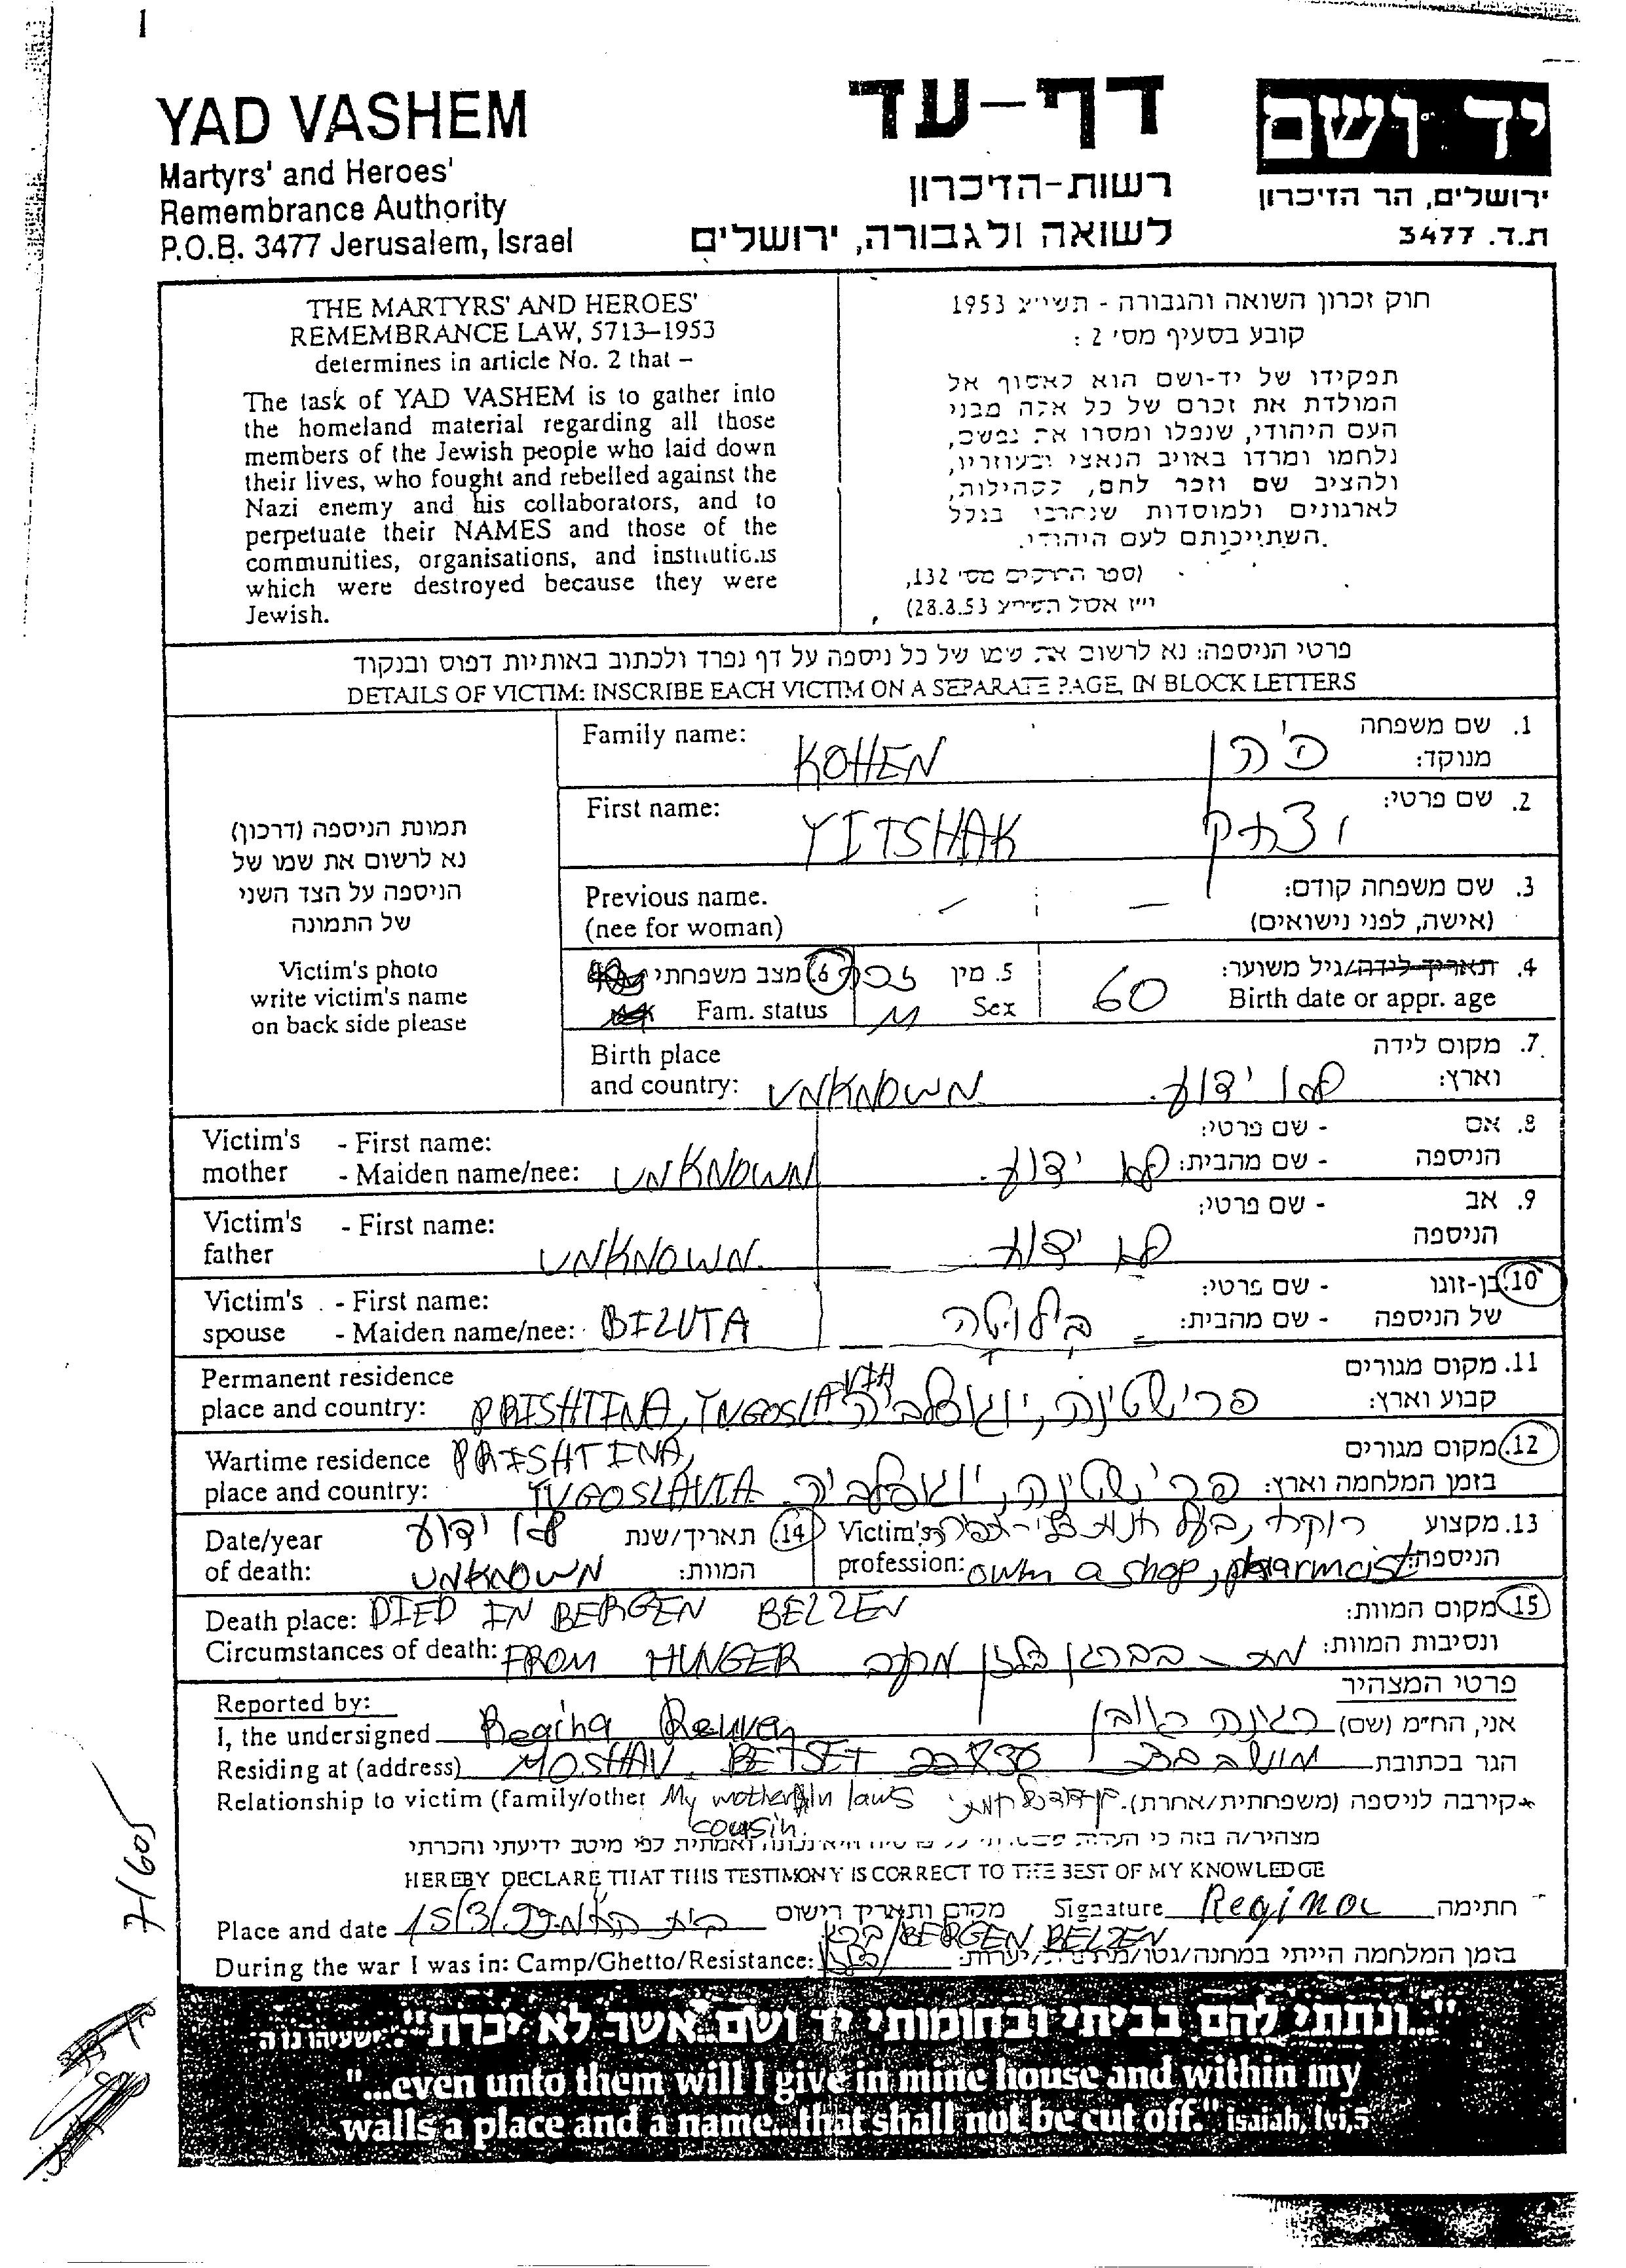 1
YAD VASHEM
Martyrs' and Heroes'
Remembrance Authority
P.O.B. 3477 Jerusalem, Israel
דף-עד
רשות-הזיכרון
לשואה ולגבורה, ירושלים
יד ושם
ירושלים, הר הזיכרון
ת.ד. 3477
THE MARTYRS' AND HEROES'
REMEMBRANCE LAW, 5713–1953
determines in article No. 2 that –
The task of YAD VASHEM is to gather into
the homeland material regarding all those
members of the Jewish people who laid down
their lives, who fought and rebelled against the
Nazi enemy and his collaborators, and to
perpetuate their NAMES and those of the
communities, organisations, and institutions
which were destroyed because they were
Jewish.
חוק זכרון השואה והגבורה - תשי"ג 1953
קובע בסעיף מס' 2 :
תפקידו של יד-ושם הוא לאסוף אל
המולדת את זכרם של כל אלה מבני
העם היהודי, שנפלו ומסרו את נפשם,
נלחמו ומרדו באויב הנאצי ובעוזריו,
ולהציב שם וזכר להם, לקהילות,
לארגונים ולמוסדות שנחרבו בגלל
השתייכותם לעם היהודי.
(ספר החוקים מס' 132,
י"ז אלול תשי"ג 28.8.53)
פרטי הניספה: נא לרשום את שמו של כל ניספה על דף נפרד ולכתוב באותיות דפוס ובנקוד
DETAILS OF VICTIM: INSCRIBE EACH VICTIM ON A SEPARATE PAGE, IN BLOCK LETTERS
תמונת הניספה (דרכון)
נא לרשום את שמו של
הניספה על הצד השני
של התמונה
Victim's photo
write victim's name
on back side please
Family name: KOHEN כהן 1. שם משפחה
מנוקד:
First name: YITSHAK יצחק 2. שם פרטי:
Previous name. - - 3. שם משפחה קודם:
(nee for woman) (אישה, לפני נישואים)
6. מצב משפחתי 5. מין זכר 4. תאריך לידה/גיל משוער:
Fam. status M Sex 60 Birth date or appr. age
Birth place 7. מקום לידה
and country: UNKNOWN לא ידוע וארץ:
Victim's - First name: - שם פרטי: 8. אם
mother - Maiden name/nee: UNKNOWN לא ידוע - שם מהבית: הניספה
Victim's - First name: - שם פרטי: 9. אב
father UNKNOWN לא ידוע הניספה
Victim's - First name: - שם פרטי: 10. בן-זוגו
spouse - Maiden name/nee: BILUTA בילוטה - שם מהבית: של הניספה
Permanent residence 11. מקום מגורים
place and country: PRISHTINA, YUGOSLAVIA פרישטינה, יוגוסלביה קבוע וארץ:
Wartime residence PRISHTINA, 12. מקום מגורים
place and country: YUGOSLAVIA פרישטינה, יוגוסלביה בזמן המלחמה וארץ:
Date/year לא ידוע תאריך/שנת 14.
of death: UNKNOWN המוות:
Victim's רוקח, בעל חנות 13. מקצוע
profession: own a shop, pharmacist הניספה:
Death place: DIED IN BERGEN BELZEN 15. מקום המוות:
Circumstances of death: FROM HUNGER מת - בברגן בלזן מרעב ונסיבות המוות:
Reported by: פרטי המצהיר
I, the undersigned Regina Reuven רגינה ראובן אני, הח"מ (שם)
Residing at (address) MOSHAV BETSET 22830 מושב בצת הגר בכתובת
Relationship to victim (family/other My mother in laws קירבה לניספה (משפחתית/אחרת).
cousin.
מצהיר/ה בזה כי העדות נכונה ואמתית לפי מיטב ידיעתי והכרתי
HEREBY DECLARE THAT THIS TESTIMONY IS CORRECT TO THE BEST OF MY KNOWLEDGE
Place and date 15/3/99 מקום ותאריך רישום Signature Regina חתימה
During the war I was in: Camp/Ghetto/Resistance: BERGEN BELZEN בזמן המלחמה הייתי במחנה/גטו/
7/605
"...ונתתי להם בביתי ובחומותי יד ושם...אשר לא יכרת". ישעיהו נו ה
"...even unto them will I give in mine house and within my
walls a place and a name...that shall not be cut off." isaiah, lvi,5